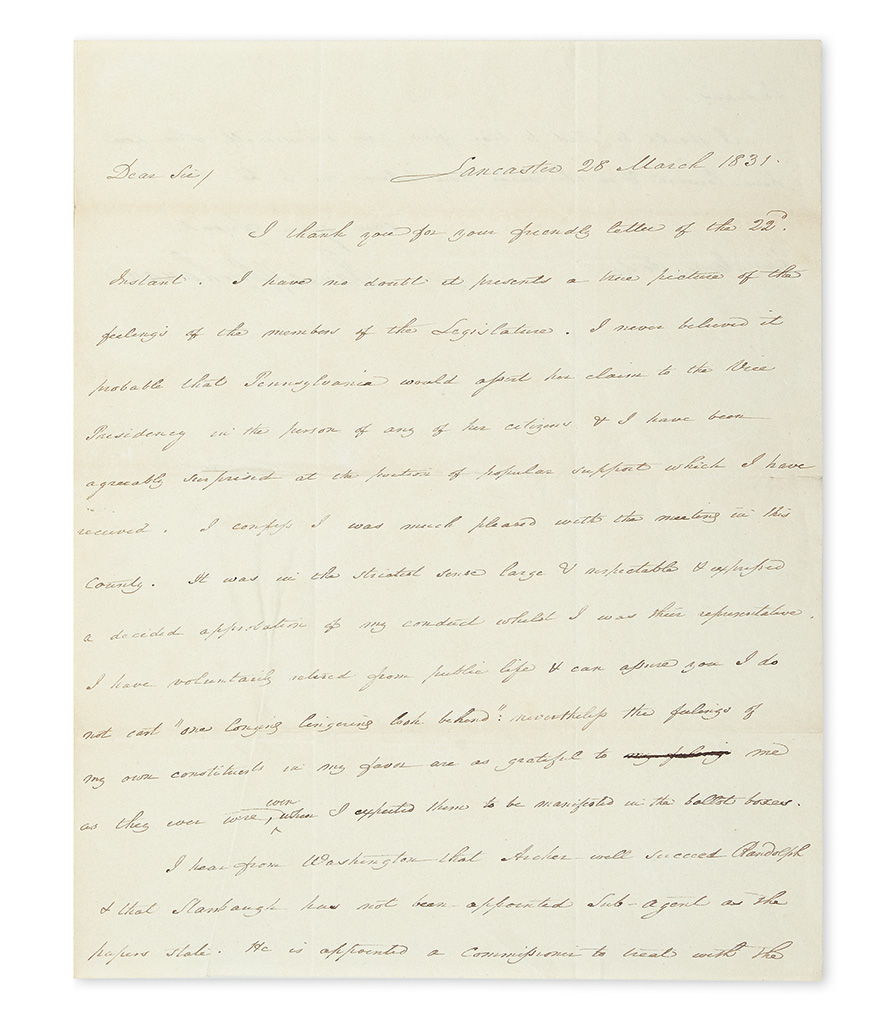 Dear Sir/ Lancaster 28 March 1831.
I thank you for your friendly letter of the 22d.
Instant. I have no doubt it presents a true picture of the
feelings of the members of the Legislature. I never believed it
probable that Pennsylvania would assert her claim to the Vice
Presidency in the person of any of her citizens & I have been
agreeably surprised at the portion of popular support which I have
received. I confess I was much pleased with the meeting in this
County. It was in the strictest sense large & respectable & expressed
a decided approbation of my conduct whilst I was their representative.
I have voluntarily retired from public life & can assure you I do
not cast "one longing lingering look behind": nevertheless the feelings of
my own constituents in my favor are as grateful to my feelings me
as they ever were, even when I expected them to be manifested in the ballot boxes.
I hear from Washington that Archer will succeed Randolph
& that Stambaugh has not been appointed Sub-Agent as the
papers state. He is appointed a Commissioner to treat with the